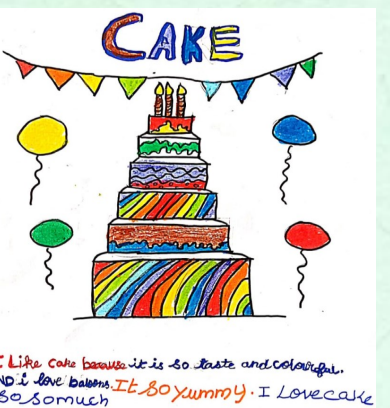 CAKE
I Like cake because it is so taste and colourful.
AND i love baloons. It so yummy. I Love cake
so somuch